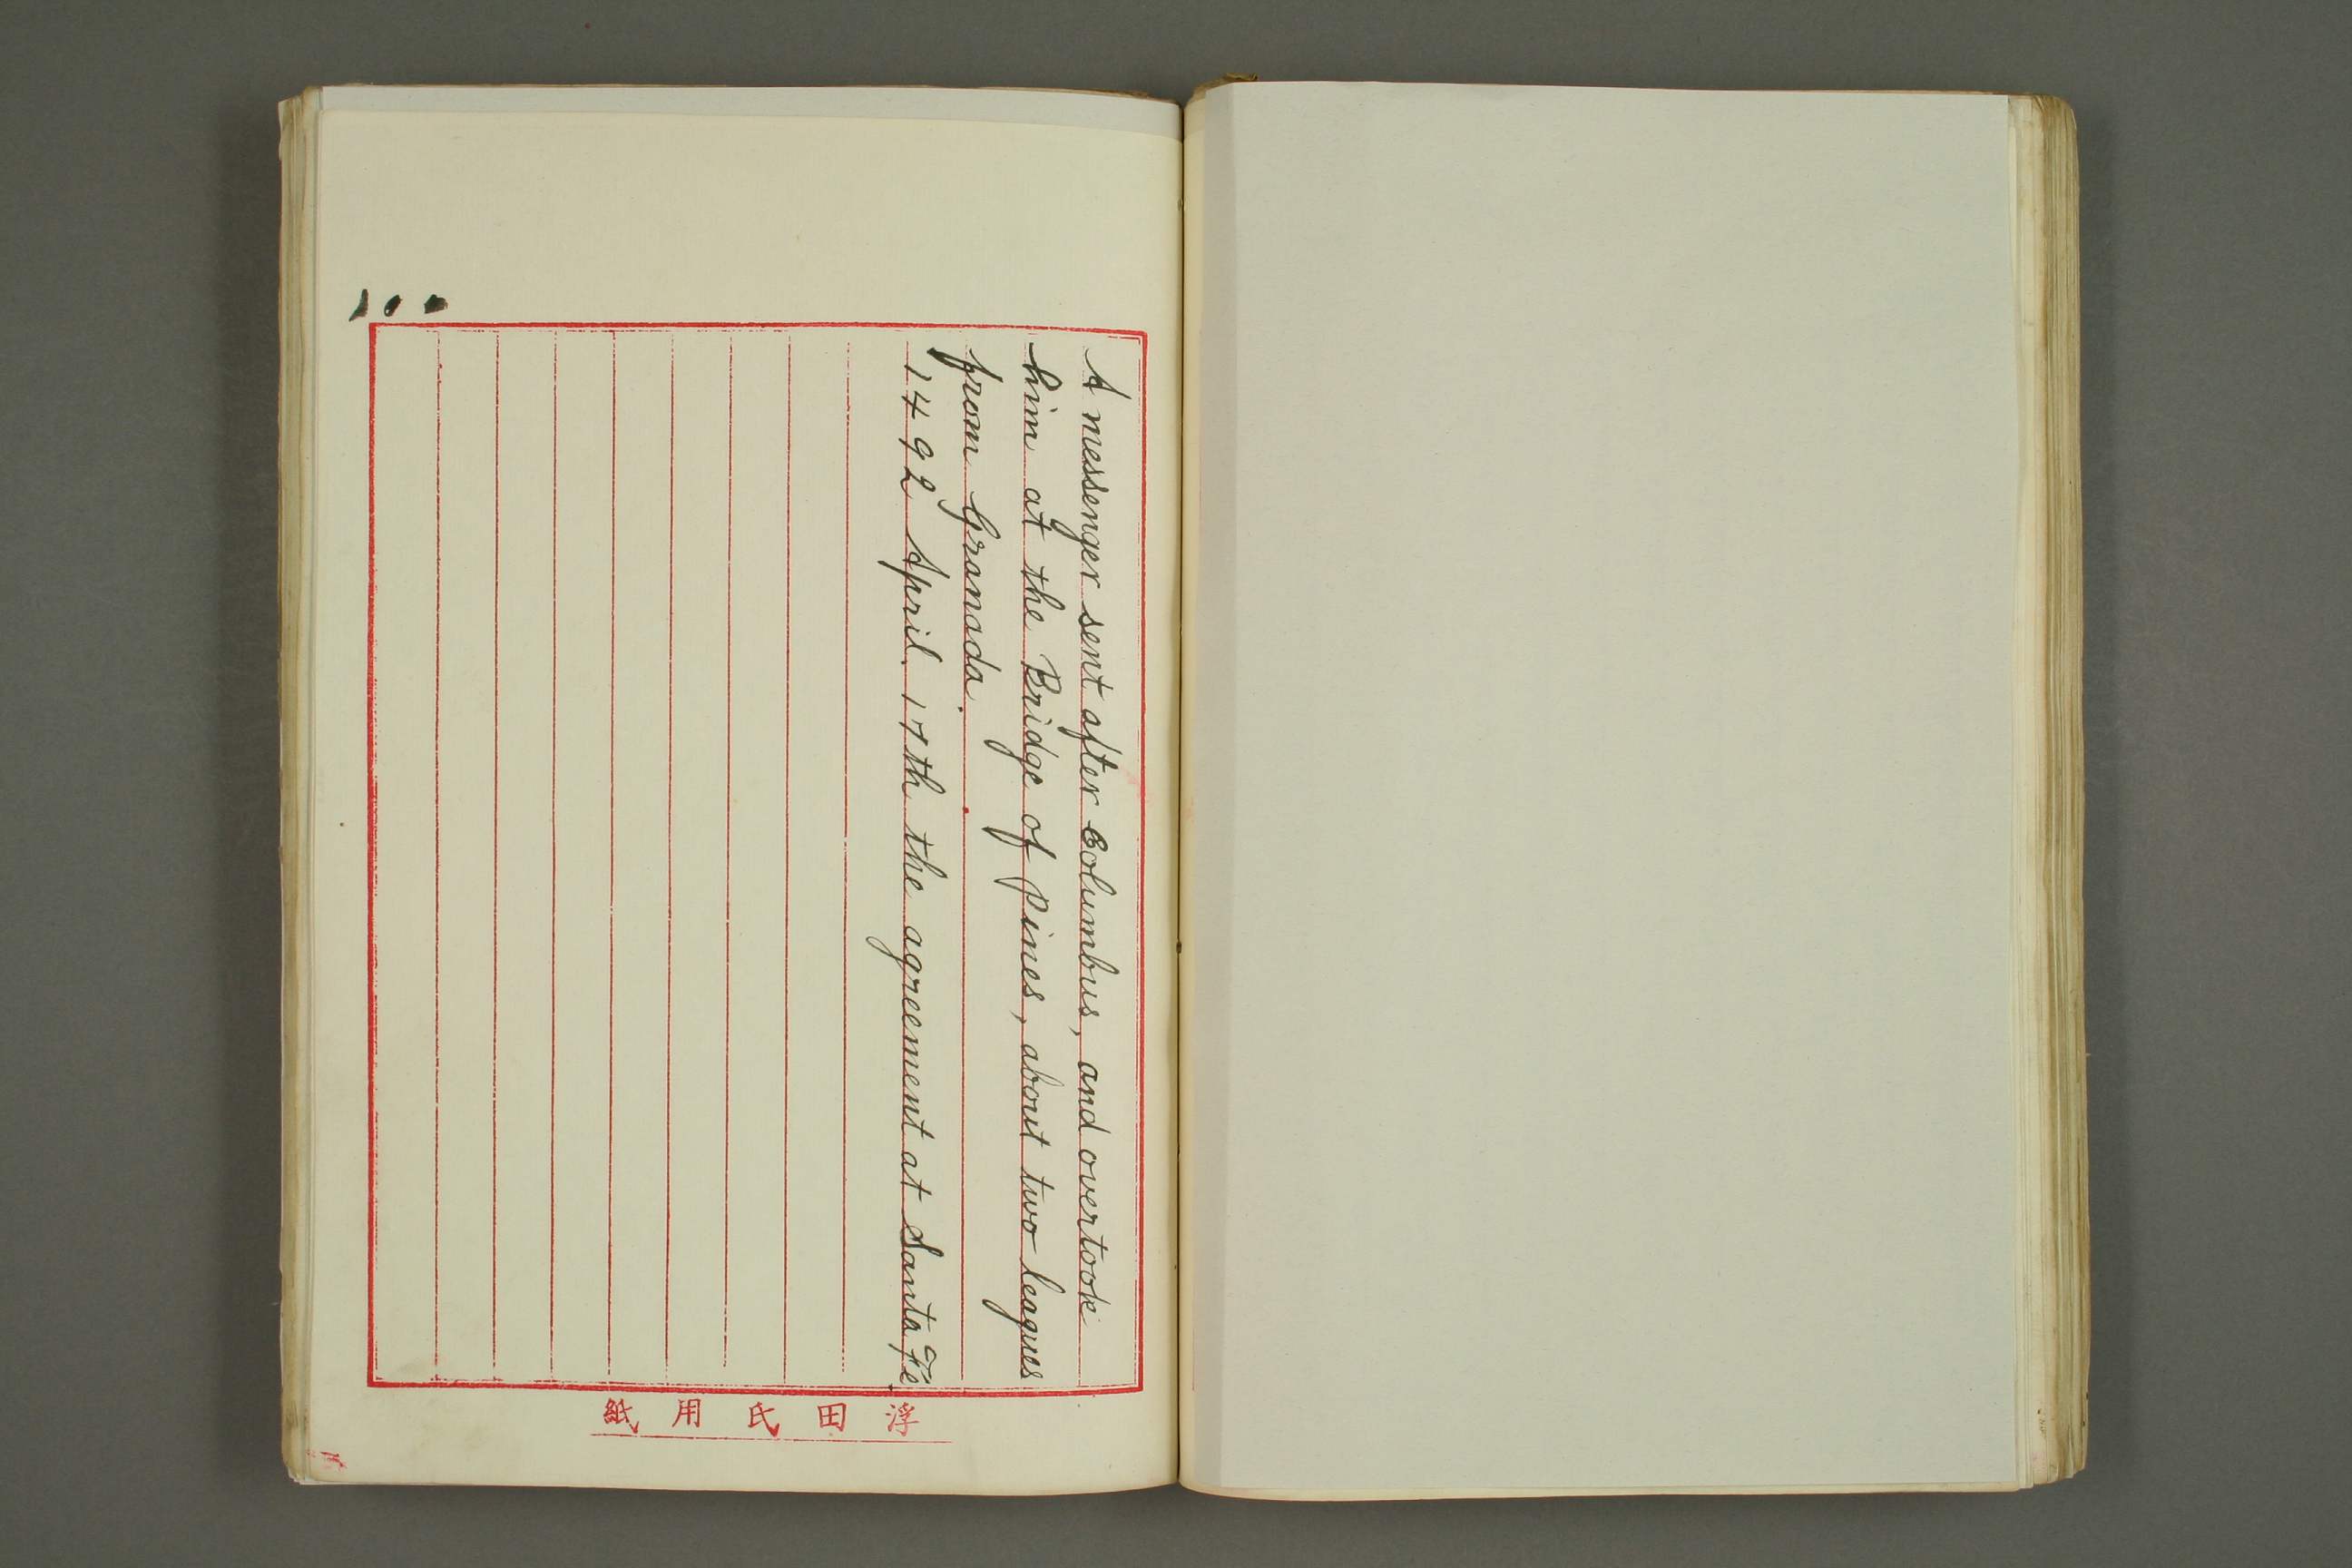 A messenger sent after Columbus, and overtook
him at the Bridge of Pines, about two leagues
from Granada.
1492 April. 17th the agreement at Santa Fe
浮田氏用紙